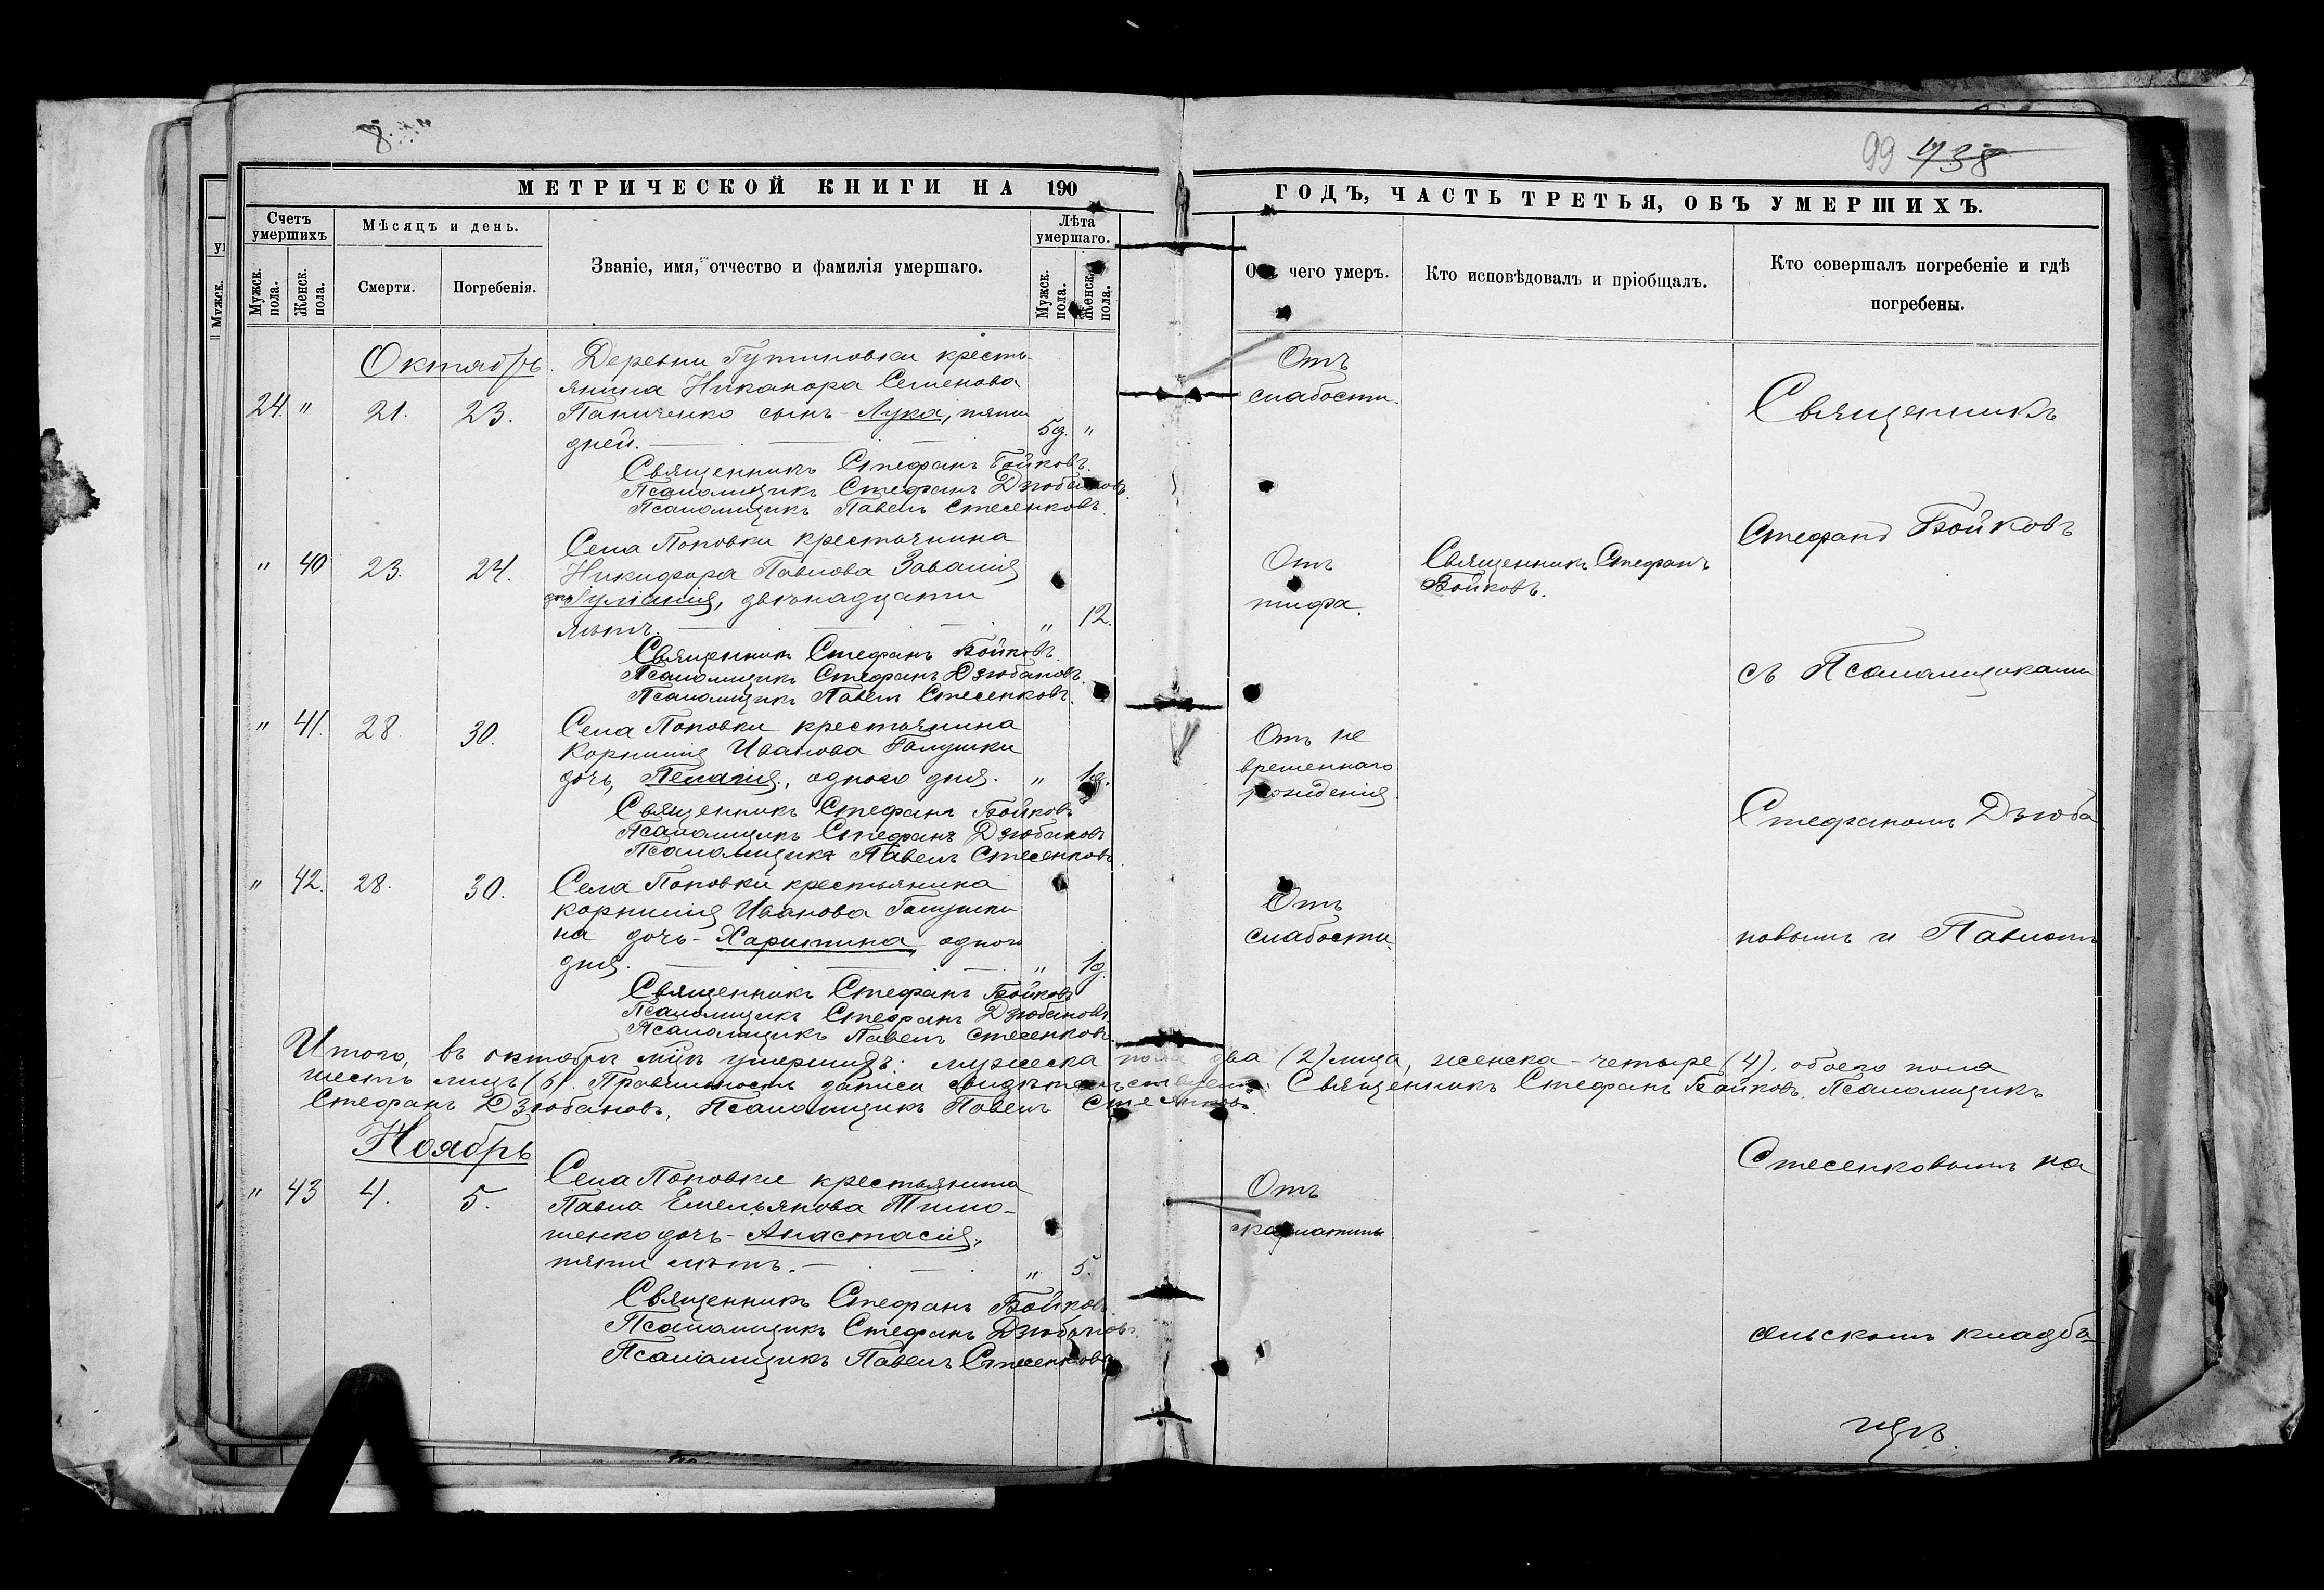 8
99 738
МЕТРИЧЕСКОЙ КНИГИ НА 190
ГОДЪ, ЧАСТЬ ТРЕТЬЯ, ОБЪ УМЕРШИХЪ.
Счетъ умершихъ
Мѣсяцъ и день.
Званіе, имя, отчество и фамилія умершаго.
Лѣта умершаго.
Мужск. пола.
Женск. пола.
Смерти.
Погребенія.
Мужск. пола.
Женск. пола.
чего умеръ.
Кто исповѣдовалъ и пріобщалъ.
Кто совершалъ погребеніе и гдѣ
погребены.
Октябрь.
24. " 21. 23.
Деревни Гутиновки кресть-
янина Никанора Семенова
Паниченко сынъ - Лука, пяти
дней. 5д. "
Священникъ Стефанъ Бойковъ.
Псаломщикъ Стефанъ Дзюбановъ.
Псаломщикъ Павелъ Стесенковъ.
Отъ
слабости.
" 40 23. 24.
Села Поповки крестьянина
Никифора Павлова
дочь Іуліанія, двѣнадцати
лѣтъ. " 12.
Священникъ Стефанъ Бойковъ.
Псаломщикъ Стефанъ Дзюбановъ.
Псаломщикъ Павелъ Стесенковъ.
Отъ
тифа.
Священникъ Стефанъ
Бойковъ.
" 41. 28. 30.
Села Поповки крестьянина
Корнилія Иванова Галушки
дочь, Пелагія, одного дня. " 1д.
Священникъ Стефанъ Бойковъ
Псаломщикъ Стефанъ Дзюбановъ
Псаломщикъ Павелъ Стесенковъ.
Отъ не
временнаго
рожденія.
" 42. 28. 30.
Села Поповки крестьянина
Корнилія Иванова Галушки
на дочь - Харитина, одного
дня. " 1д.
Священникъ Стефанъ Бойковъ
Псаломщикъ Стефанъ Дзюбановъ.
Псаломщикъ Павелъ Стесенковъ.
Отъ
слабости.
Итого, въ октябрѣ м-цѣ умершихъ: мужеска пола два (2) лица, женска - четыре (4), обоего пола
шесть лицъ (6). Правильность записи свидѣтельствуемъ: Священникъ Стефанъ Бойковъ. Псаломщикъ
Стефанъ Дзюбановъ, Псаломщикъ Павелъ Стесенковъ.
Ноябрь
" 43 4. 5.
Села Поповки крестьянина
Павла Емельянова Тимо-
шенко дочь - Анастасія,
пяти лѣтъ. " 5.
Священникъ Стефанъ Бойковъ.
Псаломщикъ Стефанъ Дзюбановъ.
Псаломщикъ Павелъ Стесенковъ
Отъ
скарлатины.
Священникъ
Стефанъ Бойковъ
съ Псаломщиками
Стефаномъ Дзюба
новымъ и Павломъ
Стесенковымъ на
сельскомъ кладби
щѣ.